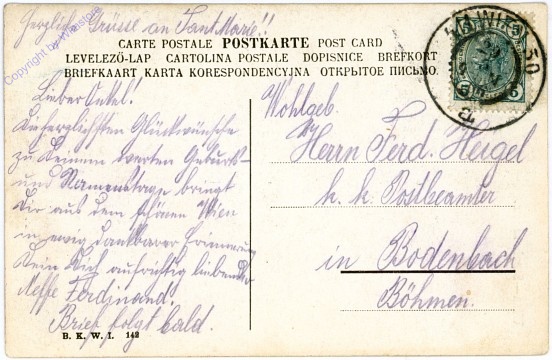 Herzliche Grüsse an Tant Marie!!
Copyright by Wienstore
CARTE POSTALE POSTKARTE POST CARD
LEVELEZŐ-LAP CARTOLINA POSTALE DOPISNICE BREFKORT
BRIEFKAART KARTA KORESPONDENCYJNA ОТКРЫТОЕ ПИСЬМО.
Lieber Onkel!
Die herzlichsten Glückwünsche
zu Deinem werten Geburts-
und Namenstage bringt
Dir aus dem schönen Wien
in ewig dankbarer Erinnerung
Dein Dich aufrichtig liebender
Neffe Ferdinand!
Brief folgt bald.
B. K. W. I. 142
WIEN
50
5 5
Wohlgeb.
Herrn Ferd. Heigel
k. k. Postbeamter
in Bodenbach
Böhmen.